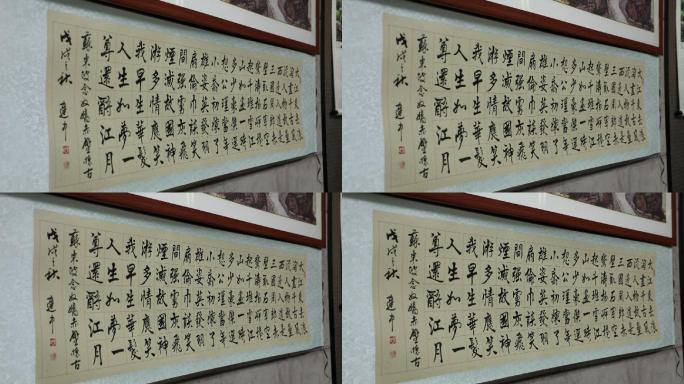 大江東去浪
淘盡千古風
流人物故壘
西邊人道是
三國周郎赤
壁亂石穿空
驚濤拍岸捲
起千堆雪江
山如畫一時
多少豪傑遥
想公瑾當年
小喬初嫁了
雄姿英發羽
扇綸巾談笑
間強虜灰飛
煙滅故國神
游多情應笑
我早生華髮
人生如夢一
尊還酹江月
蘇東坡念奴嬌赤壁懷古
戊戌之秋